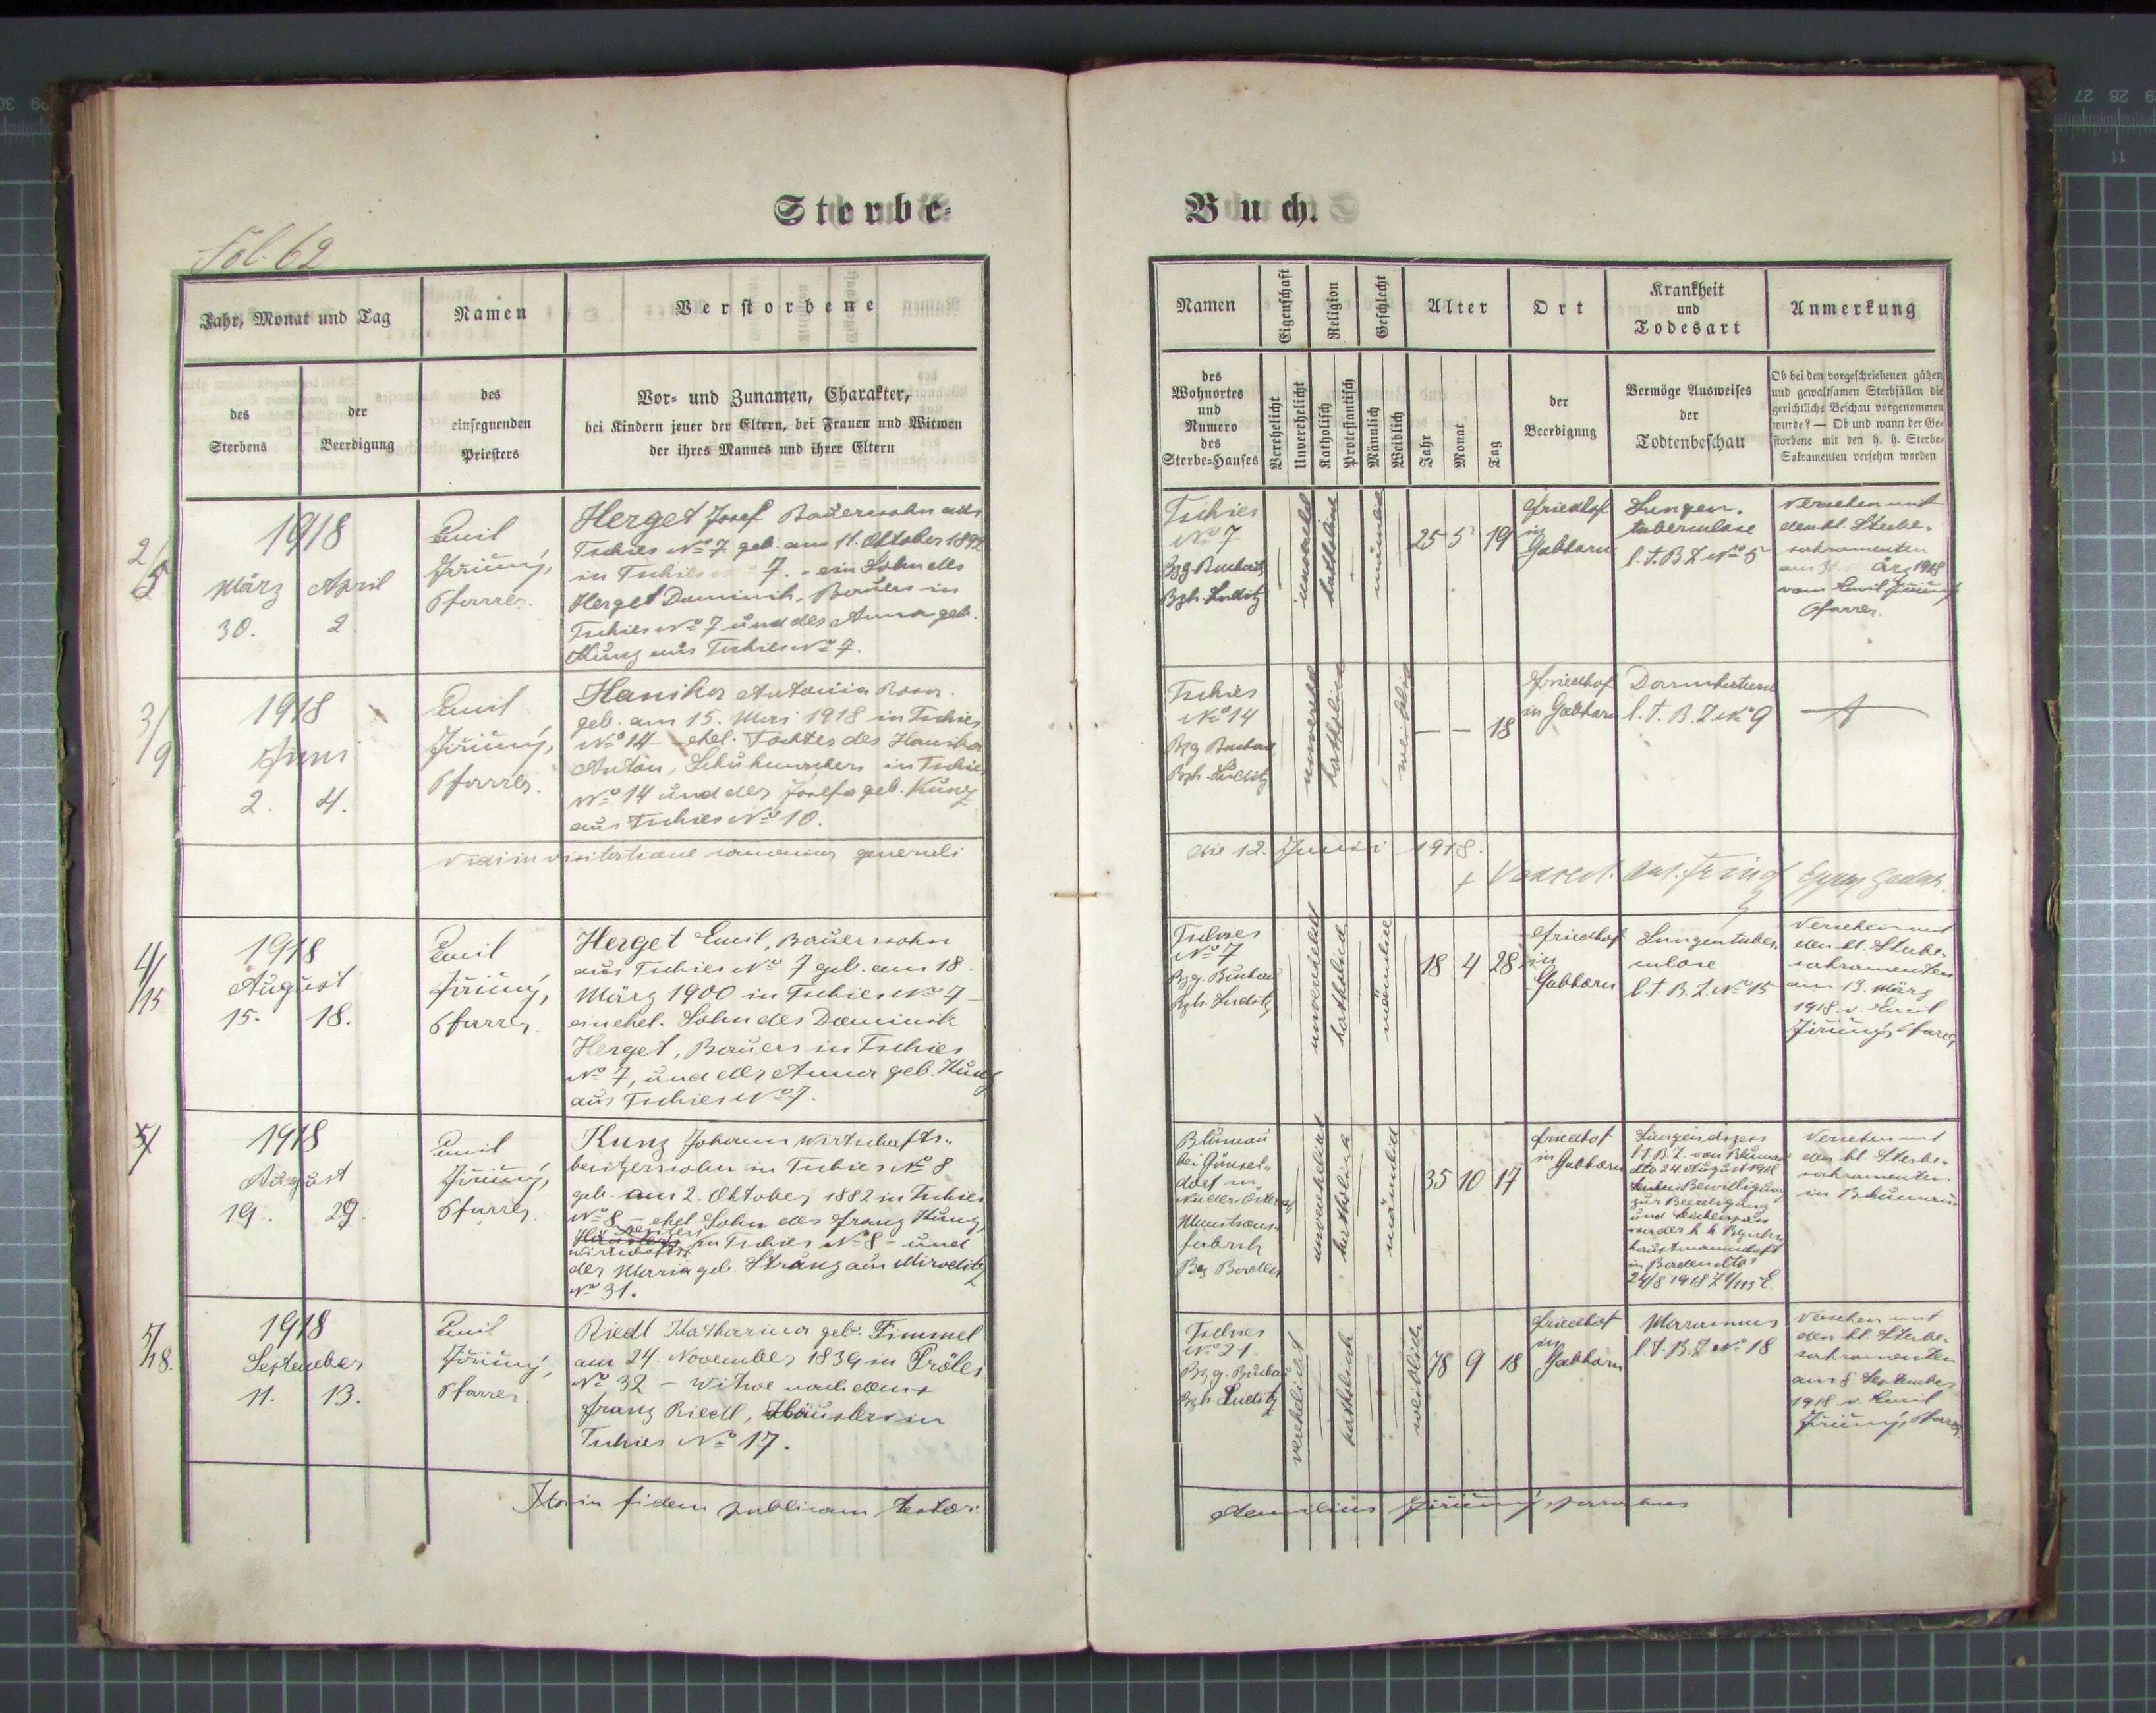 Sterbe-
Buch.
Fol. 62
Jahr, Monat und Tag
Namen
Verstorbene
des
Sterbens
der
Beerdigung
des
einsegnenden
Priesters
Vor- und Zunamen, Charakter,
bei Kindern jener der Eltern, bei Frauen und Witwen
der ihres Mannes und ihrer Eltern
Namen
Eigenschaft
Religion
Geschlecht
Alter
Ort
Krankheit
und
Todesart
Anmerkung
des
Wohnortes
und
Numero
des
Sterbe-Hauses
Verehelicht
Unverehelicht
Katholisch
Protestantisch
Männlich
Weiblich
Jahr
Monat
Tag
der
Beerdigung
Vermöge Ausweises
der
Todtenbeschau
Ob bei den vorgeschriebenen gähen
und gewaltsamen Sterbfällen die
gerichtliche Beschau vorgenommen
wurde? — Ob und wann der Ge-
storbene mit den h. h. Sterbe-
Sakramenten versehen worden
2/5
1918
März
30.
April
2.
Emil
Jiřičný,
Pfarrer.
Herget Josef Bauerssohn aus
Tschies No 7 geb. am 11. Oktober 1892
in Tschies 7. - ein Sohn des
Herget Dominik, Bauers in
Tschies No 7 und der Anna geb.
Kunz aus Tschies No 7.
Tschies
No 7
Bzg Buchau
Bzh. Luditz
katholisch
männlich
25 5 19
Friedhof
in
Gabhorn
Lungen-
tuberculose
l. T. B. Z. No 5
Versehen mit
den hl. Sterbe-
sakramenten
1918
vom Emil Jiřičný
Pfarrer.
3/9
1918
Juni
2. 4.
Emil
Jiřičný,
Pfarrer.
Hanika Antonia Rosa.
geb. am 15. Mai 1918 in Tschies
No 14 - ehel. Tochter des Hanika
Anton, Schuhmachers in Tschies
No 14 und der Josefa geb. Kunz
aus Tschies No 10.
Tschies
No 14
Bzg Buchau
Bzh. Luditz
katholisch
weiblich
— — 18
Friedhof
in Gabhorn
l. T. B. Z. No 9
Vidi in visitatione canonica generali
die 12. Junii 1918.
4/15
1918
August
15. 18.
Emil
Jiřičný,
Pfarrer.
Herget Emil, Bauerssohn
aus Tschies No 7 geb. am 18.
März 1900 in Tschies No 7 -
ein ehel. Sohn des Dominik
Herget, Bauers in Tschies
No 7, und der Anna geb. Kunz
aus Tschies No 7.
Tschies
No 7
Bzg. Buchau
Bzh. Luditz
unverehelicht
katholisch
männlich
18 4 28
Friedhof
in
Gabhorn
Lungentuber-
culose
l. T. B. Z. No 15
Versehen mit
den hl. Sterbe-
sakramenten
am 13. März
1918 v. Emil
Jiřičný, Pfarrer
5/
1918
August
19. 29.
Emil
Jiřičný,
Pfarrer.
Kunz Johann Wirtschafts-
besitzerssohn in Tschies No 8
geb. am 2. Oktober 1882 in Tschies
No 8 - ehel. Sohn des Franz Kunz,
Häuslers besitzers
wirtschafts in Tschies No 8 - und
der Maria geb. Strunz aus Miroditz
No 31.
Blumau
bei Günsel-
dorf in
Nieder-Österr.
Munitions-
fabrik
unverehelicht
katholisch
männlich
35 10 17
Friedhof
in Gabhorn
l. T. B. Z. von Blumau
dto 24 August 1918
Bewilligung
zur Beerdigung
und Leichenpass
von der k. k. Bezirks-
hauptmannschaft
in Baden dto
24/8 1918
Versehen mit
den hl. Sterbe-
sakramenten
in Blumau
5/18.
1918
September
11. 13.
Emil
Jiřičný,
Pfarrer
Riedl Katharina geb. Fimmel
am 24. November 1839 in Pröles
No 32 - Witwe nach dem +
Franz Riedl, Häuslers in
Tschies No 17.
Tschies
No 21.
Bzg. Buchau
Bzh Luditz
verehelicht
katholisch
weiblich
78 9 18
Friedhof
in
Gabhorn
Marasmus
l. T. B. Z. No 18
Versehen mit
den hl. Sterbe-
sakramenten
am 8 September
1918 v. Emil
Jiřičný, Pfarrer.
in fidem publicam testor:
Aemilius Jiřičný, parochus